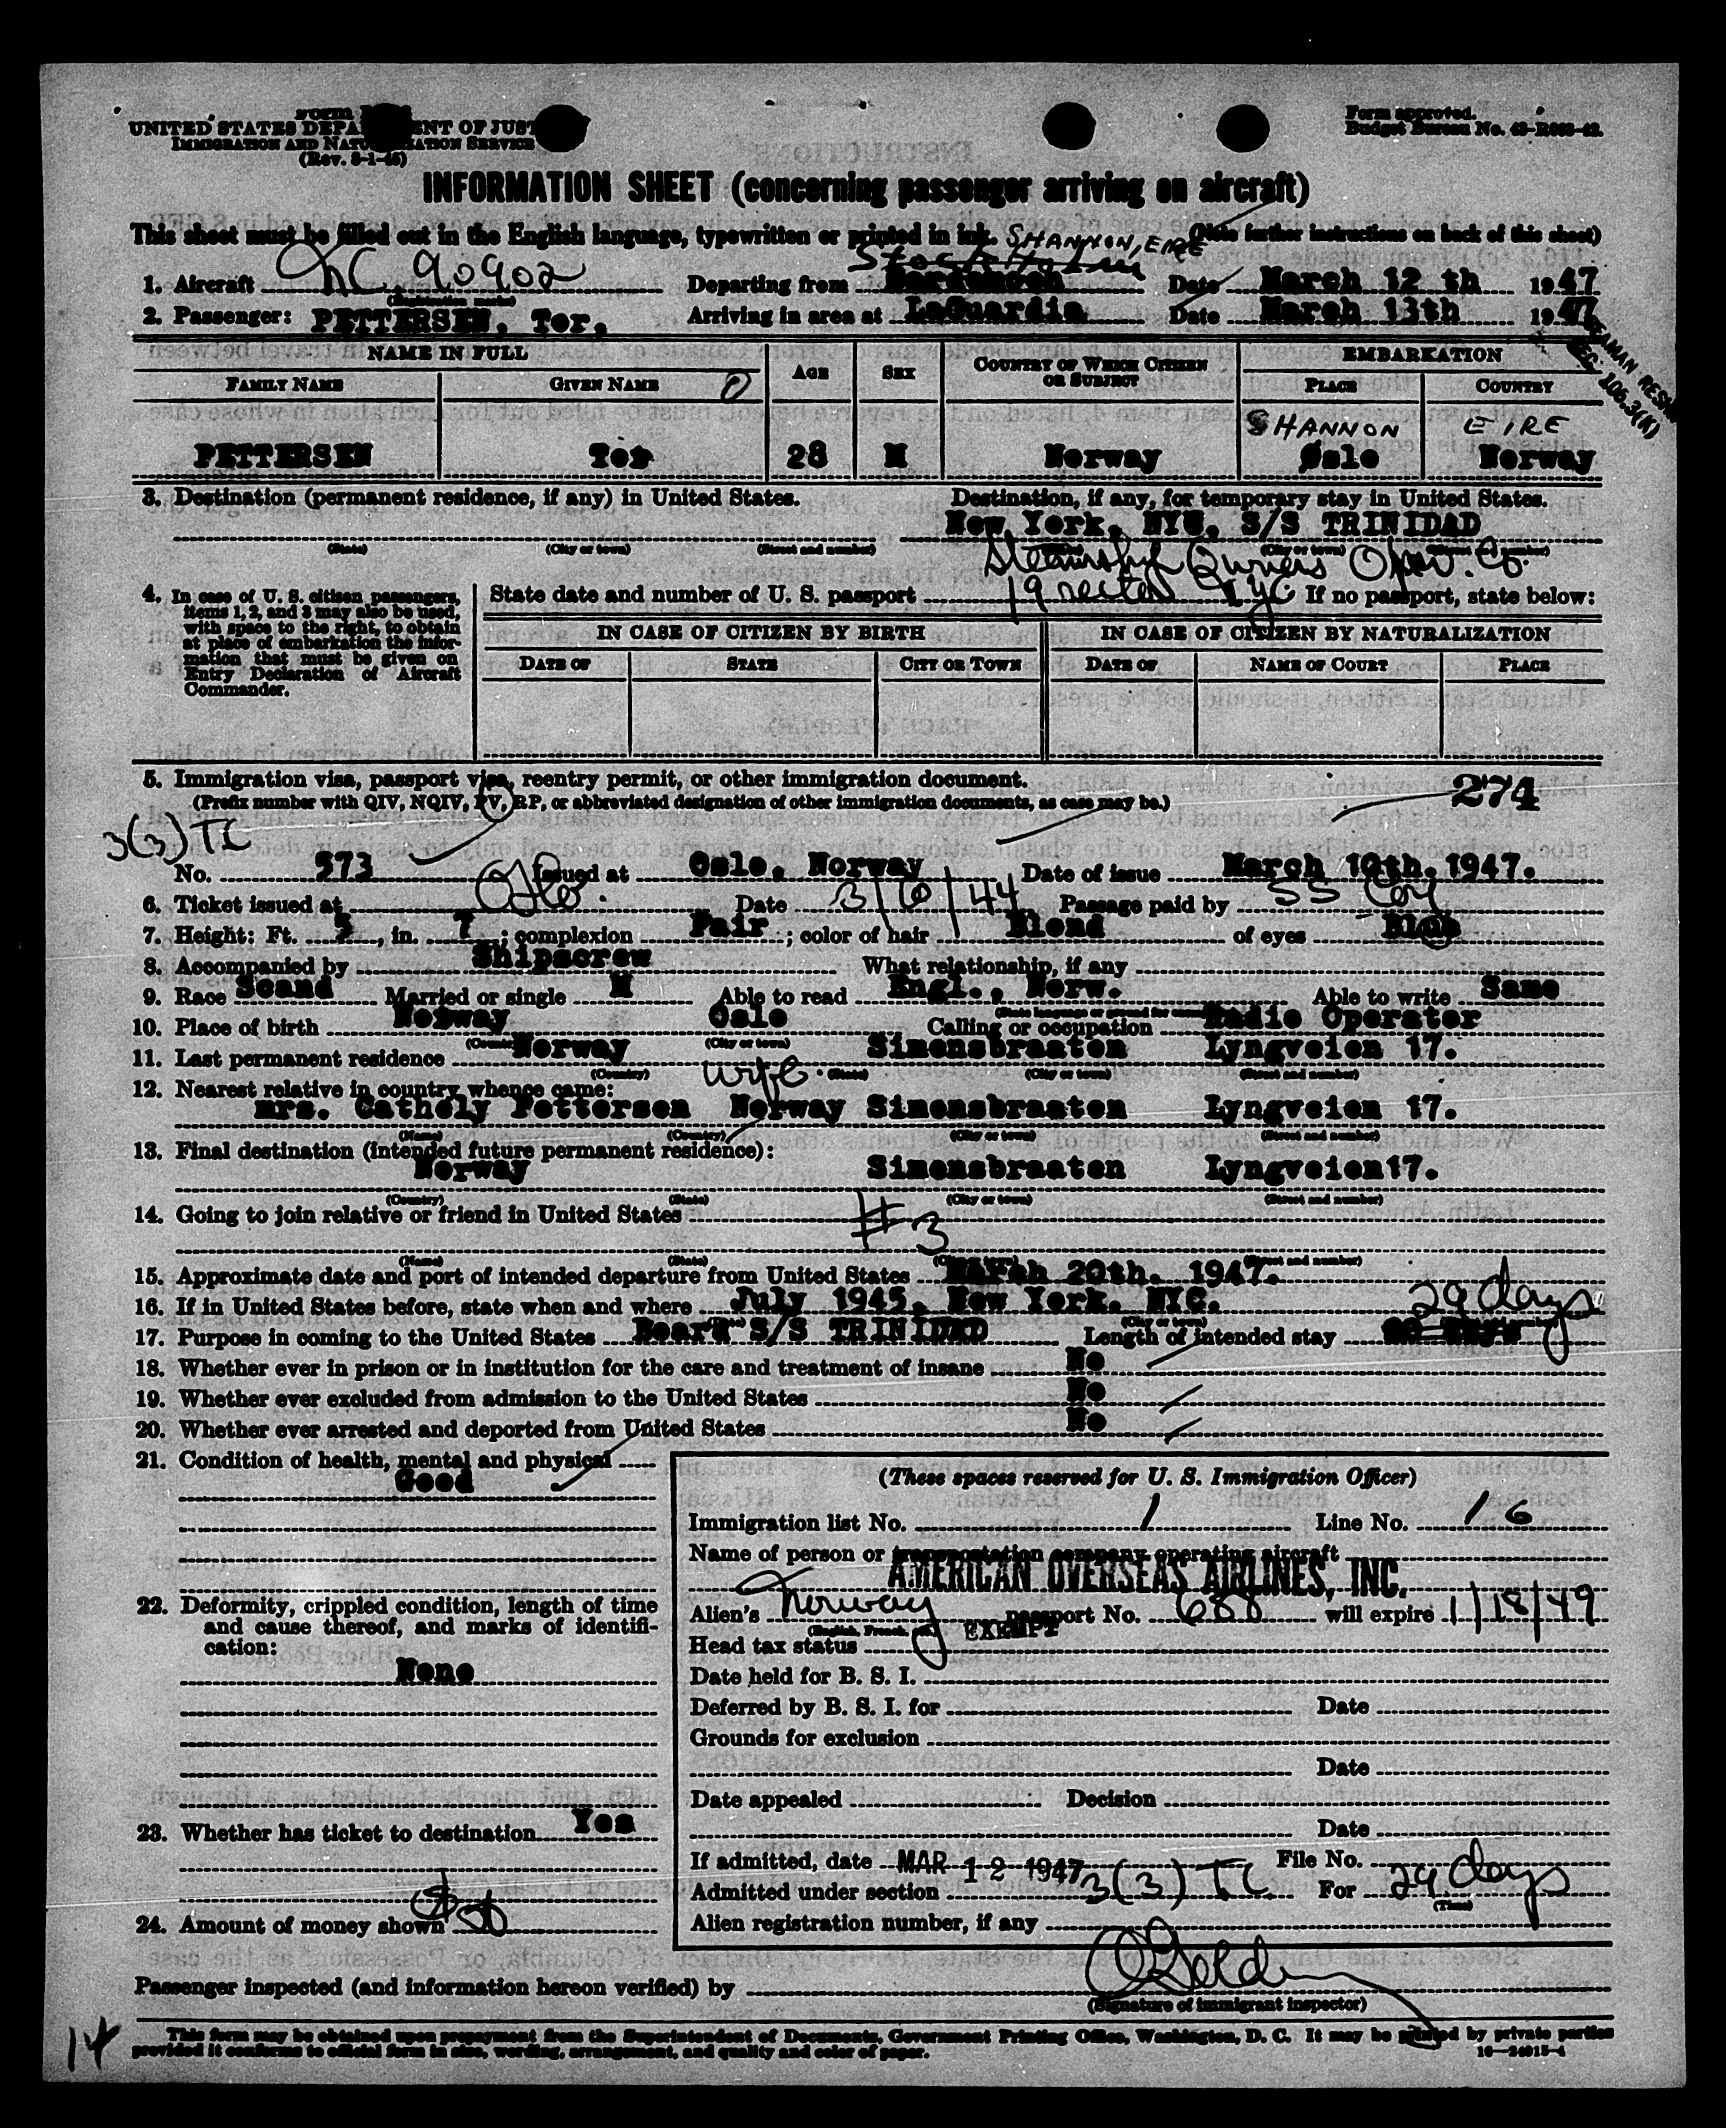 UNITED STATES DEPA ENT OF JUST
IMMIGRATION AND NATU ATION SERVICE
(Rev. 8-1-45)
Form approved.
Budget Bureau No. 43-R063-42.
INFORMATION SHEET (concerning passenger arriving on aircraft)
This sheet must be filled out in the English language, typewritten or printed in ink. (Note further instructions on back of this sheet)
SHANNON, EIRE
Stockholm
1. Aircraft NC 90902 Departing from Date March 12 th 1947
(Registration marks)
2. Passenger: PETTERSEN, Tor. Arriving in area at LaGuardia Date March 13th 1947
SEAMAN RESIN
REG 106.3(K)
NAME IN FULL AGE SEX COUNTRY OF WHICH CITIZEN OR SUBJECT EMBARKATION
FAMILY NAME GIVEN NAME PLACE COUNTRY
SHANNON EIRE
PETTERSEN Tor 28 M Norway Oslo Norway
3. Destination (permanent residence, if any) in United States. Destination, if any, for temporary stay in United States.
New York, NYC, S/S TRINIDAD
(State) (City or town) (Street and number) (City or town) (Street and number)
Steamship Owners Oper. Co.
19 rector NYC
4. In case of U. S. citizen passengers, items 1, 2, and 3 may also be used, with space to the right, to obtain at place of embarkation the information that must be given on Entry Declaration of Aircraft Commander.
State date and number of U. S. passport If no passport, state below:
IN CASE OF CITIZEN BY BIRTH IN CASE OF CITIZEN BY NATURALIZATION
DATE OF STATE CITY OR TOWN DATE OF NAME OF COURT PLACE
5. Immigration visa, passport visa, reentry permit, or other immigration document.
(Prefix number with QIV, NQIV, PV, RP, or abbreviated designation of other immigration documents, as case may be.)
274
3(3) TC
No. 573 Issued at Oslo, Norway Date of issue March 10th. 1947.
6. Ticket issued at Oslo. Date 3/6/44 Passage paid by SS Coy
7. Height: Ft. 5, in. 7; complexion Fair; color of hair Blond of eyes Blue
8. Accompanied by Shipscrew What relationship, if any
9. Race Scand Married or single M Able to read Engl., Norw. Able to write Same
10. Place of birth Norway Oslo Calling or occupation Radio Operator
(Country) (City or town)
11. Last permanent residence Norway Simensbraaten Lyngveien 17.
(Country) (State) (City or town) (Street and number)
wife.
12. Nearest relative in country whence came:
mrs. Cathely Pettersen Norway Simensbraaten Lyngveien 17.
(Name) (Country) (City or town) (Street and number)
13. Final destination (intended future permanent residence):
Norway Simensbraaten Lyngveien17.
(Country) (State) (City or town) (Street and number)
14. Going to join relative or friend in United States
#3
(Name) (State) (City or town) (Street and number)
15. Approximate date and port of intended departure from United States March 20th. 1947.
16. If in United States before, state when and where July 1945, New York. NYC.
29 days
17. Purpose in coming to the United States Board S/S TRINIDAD Length of intended stay
18. Whether ever in prison or in institution for the care and treatment of insane No
19. Whether ever excluded from admission to the United States No
20. Whether ever arrested and deported from United States No
21. Condition of health, mental and physical
Good
22. Deformity, crippled condition, length of time and cause thereof, and marks of identification:
None
23. Whether has ticket to destination Yes
24. Amount of money shown
(These spaces reserved for U. S. Immigration Officer)
Immigration list No. 1 Line No. 16
Name of person or transportation company operating aircraft
AMERICAN OVERSEAS AIRLINES, INC.
Alien's Norway passport No. 688 will expire 1/18/49
Head tax status EXEMPT
Date held for B. S. I.
Deferred by B. S. I. for Date
Grounds for exclusion
Date
Date appealed Decision
Date
If admitted, date MAR 12 1947 File No.
Admitted under section 3(3) TC For 29 days
(Time)
Alien registration number, if any
Passenger inspected (and information hereon verified) by
(Signature of immigrant inspector)
This form may be obtained upon prepayment from the Superintendent of Documents, Government Printing Office, Washington, D. C. It may be printed by private parties
provided it conforms to official form in size, wording, arrangement, and quality and color of paper.
16—24915-4
14